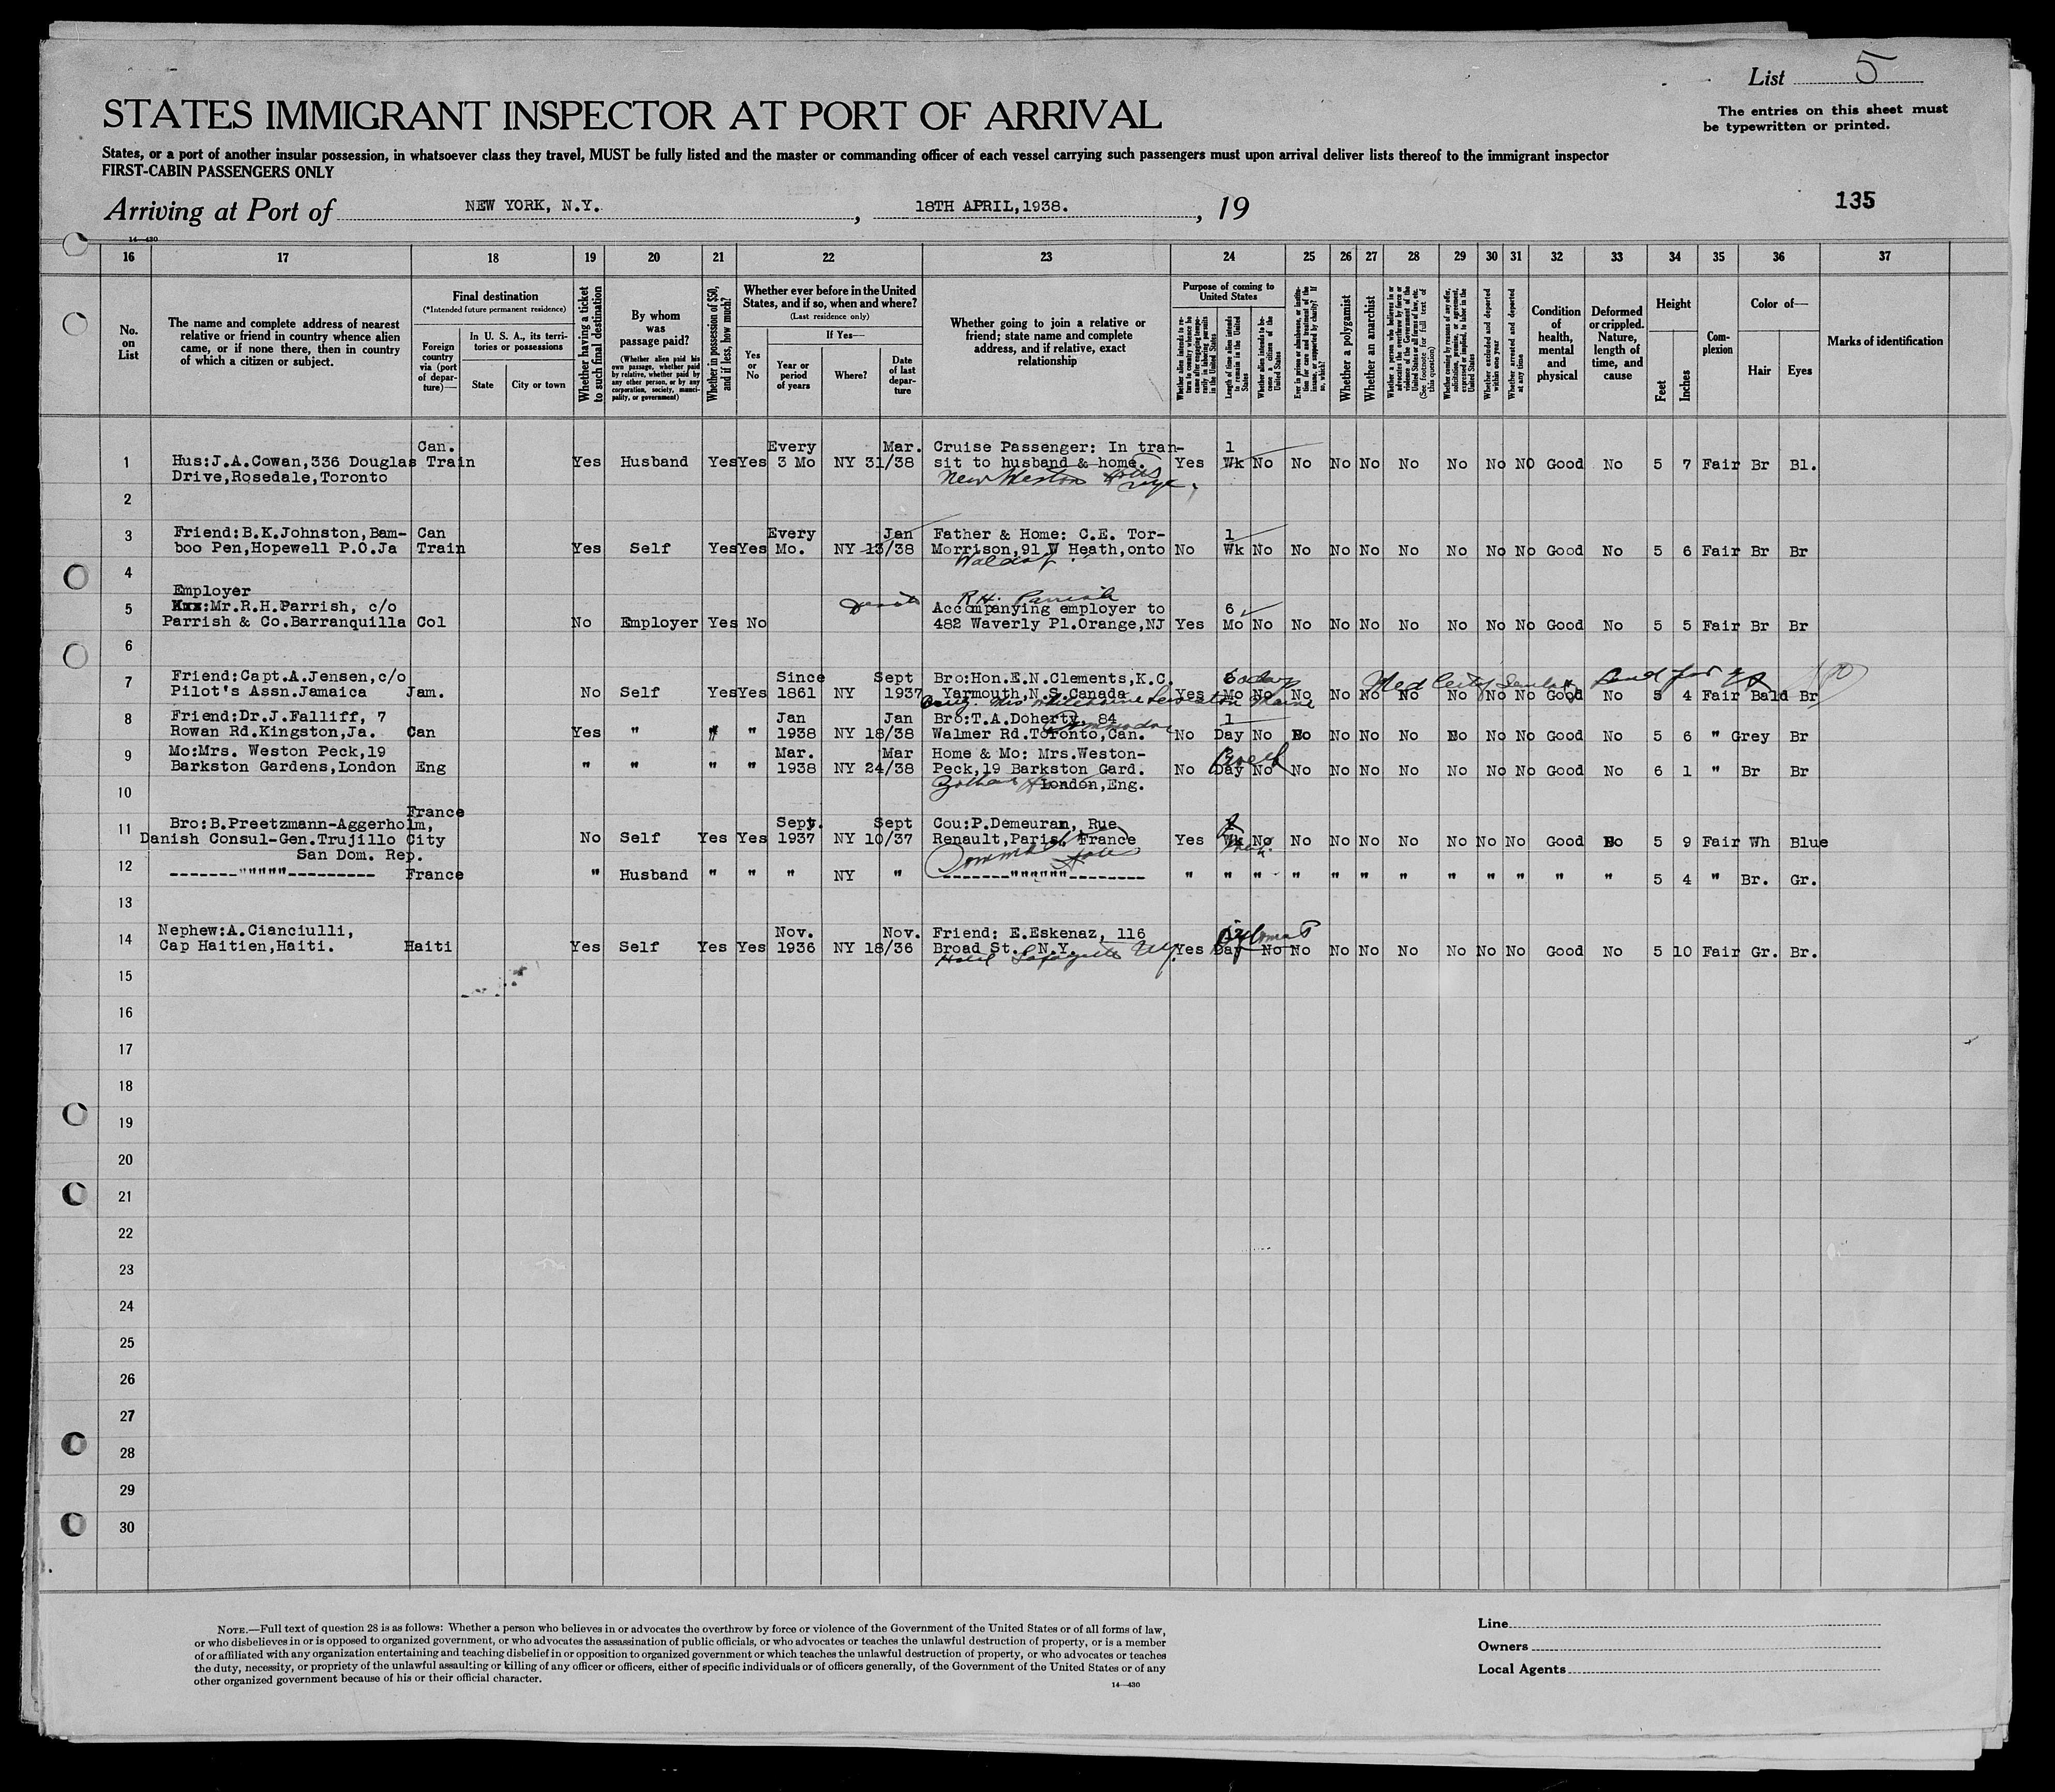 List 5
STATES IMMIGRANT INSPECTOR AT PORT OF ARRIVAL
The entries on this sheet must
be typewritten or printed.
States, or a port of another insular possession, in whatsoever class they travel, MUST be fully listed and the master or commanding officer of each vessel carrying such passengers must upon arrival deliver lists thereof to the immigrant inspector
FIRST-CABIN PASSENGERS ONLY
Arriving at Port of NEW YORK, N.Y. , 18TH APRIL,1938. , 19
135
14—430
16 17 18 19 20 21 22 23 24 25 26 27 28 29 30 31 32 33 34 35 36 37
No. on List
The name and complete address of nearest relative or friend in country whence alien came, or if none there, then in country of which a citizen or subject.
Final destination
(*Intended future permanent residence)
Foreign country via (port of departure)—
In U. S. A., its territories or possessions
State
City or town
Whether having a ticket to such final destination
By whom was passage paid?
(Whether alien paid his own passage, whether paid by relative, whether paid by any other person, or by any corporation, society, municipality, or government)
Whether in possession of $50, and if less, how much?
Whether ever before in the United States, and if so, when and where?
(Last residence only)
Yes or No
If Yes—
Year or period of years
Where?
Date of last departure
Whether going to join a relative or friend; state name and complete address, and if relative, exact relationship
Purpose of coming to United States
Whether alien intends to return to country whence he came after engaging temporarily in laboring pursuits in the United States
Length of time alien intends to remain in the United States
Whether alien intends to become a citizen of the United States
Ever in prison or almshouse, or institution for care and treatment of the insane, or supported by charity? If so, which?
Whether a polygamist
Whether an anarchist
Whether a person who believes in or advocates the overthrow by force or violence of the Government of the United States or all forms of law, etc. (See footnote for full text of this question)
Whether coming by reason of any offer, solicitation, promise, or agreement, expressed or implied, to labor in the United States
Whether excluded and deported within one year
Whether arrested and deported at any time
Condition of health, mental and physical
Deformed or crippled. Nature, length of time, and cause
Height
Feet
Inches
Complexion
Color of—
Hair
Eyes
Marks of identification
Can. Every Mar. Cruise Passenger: In tran- 1
1 Hus:J.A.Cowan,336 Douglas Train Yes Husband Yes Yes 3 Mo NY 31/38 sit to husband & home. Yes Wk No No No No No No No NO Good No 5 7 Fair Br Bl.
Drive,Rosedale,Toronto New Weston Hotel
2
3 Friend:B.K.Johnston,Bam- Can Every Jan Father & Home: C.E. Tor- 1
boo Pen,Hopewell P.O.Ja Train Yes Self Yes Yes Mo. NY 13/38 Morrison,91 W Heath,onto No Wk No No No No No No No No Good No 5 6 Fair Br Br
Waldorf
4
Employer R.H. Parrish
5 Xxx:Mr.R.H.Parrish, c/o Accompanying employer to 6
Parrish & Co.Barranquilla Col No Employer Yes No 482 Waverly Pl.Orange,NJ Yes Mo No No No No No No No No Good No 5 5 Fair Br Br
6
7 Friend:Capt.A.Jensen,c/o Since Sept Bro:Hon.E.N.Clements,K.C. 6
Pilot's Assn.Jamaica Jam. No Self Yes Yes 1861 NY 1937 Yarmouth,N.S.Canada Yes Mo No No No No No No No No Good No 5 4 Fair Bald Br
8 Friend:Dr.J.Falliff, 7 Jan Jan Bro:T.A.Doherty, 84 1
Rowan Rd.Kingston,Ja. Can Yes " " " 1938 NY 18/38 Walmer Rd.Toronto,Can. No Day No No No No No No No No Good No 5 6 " Grey Br
Commodore
9 Mo:Mrs. Weston Peck,19 Mar. Mar Home & Mo: Mrs.Weston-
Barkston Gardens,London Eng " " " " 1938 NY 24/38 Peck,19 Barkston Gard. No Day No No No No No No No No Good No 6 1 " Br Br
10 London,Eng.
France
11 Bro:B.Preetzmann-Aggerholm, Sept. Sept Cou:P.Demeuran, Rue
Danish Consul-Gen.Trujillo City No Self Yes Yes 1937 NY 10/37 Renault,Paris, France Yes Wk No No No No No No No No Good No 5 9 Fair Wh Blue
San Dom. Rep.
12 -------"""""--------- France " Husband " " " NY " -------""""""-------- " " " " " " " " " " " " 5 4 " Br. Gr.
13
14 Nephew:A.Cianciulli, Nov. Nov. Friend: E.Eskenaz, 116 Diplomat
Cap Haitien,Haiti. Haiti Yes Self Yes Yes 1936 NY 18/36 Broad St., N.Y. Yes Day No No No No No No No No Good No 5 10 Fair Gr. Br.
Hotel Lafayette NY.
15
16
17
18
19
20
21
22
23
24
25
26
27
28
29
30
NOTE.—Full text of question 28 is as follows: Whether a person who believes in or advocates the overthrow by force or violence of the Government of the United States or of all forms of law,
or who disbelieves in or is opposed to organized government, or who advocates the assassination of public officials, or who advocates or teaches the unlawful destruction of property, or is a member
of or affiliated with any organization entertaining and teaching disbelief in or opposition to organized government or which teaches the unlawful destruction of property, or who advocates or teaches
the duty, necessity, or propriety of the unlawful assaulting or killing of any officer or officers, either of specific individuals or of officers generally, of the Government of the United States or of any
other organized government because of his or their official character.
14—430
Line
Owners
Local Agents